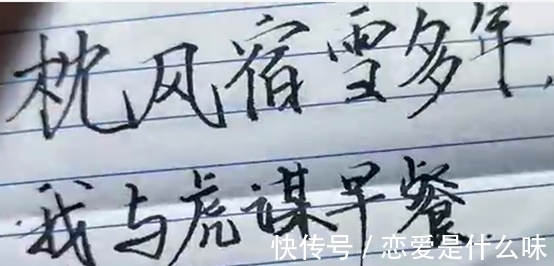 枕风宿雪多年,
我与虎谋早餐.
快传号/恋爱是什么味